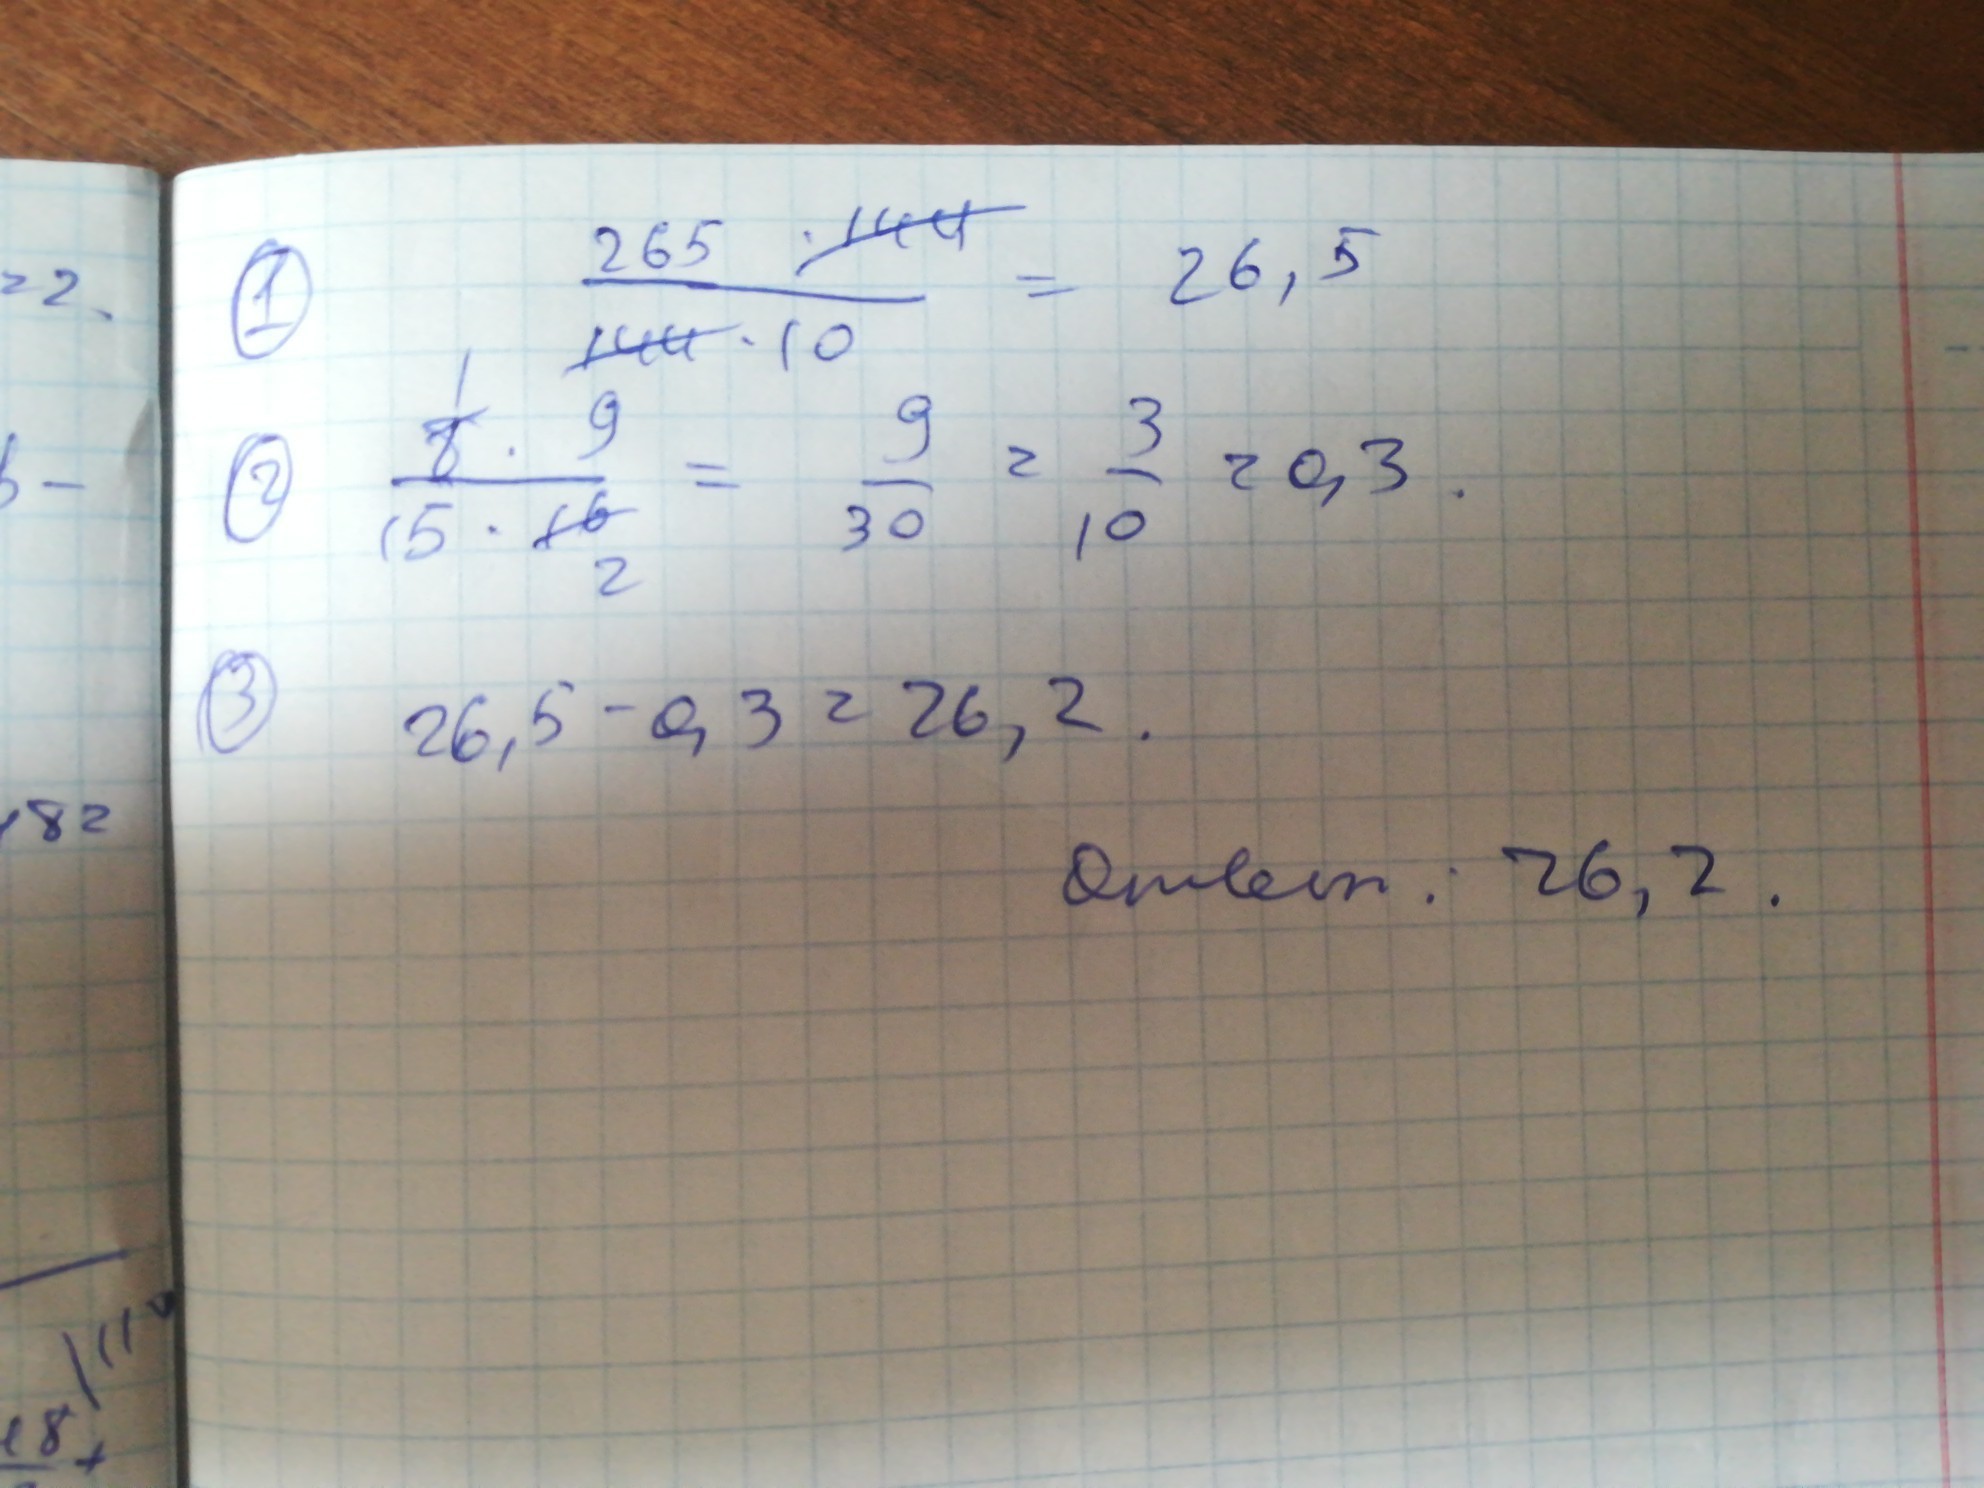 =2.
① 265 · 144 / 144 · 10 = 26,5
1
② 8 · 9 / 15 · 16 = 9 / 30 = 3 / 10 = 0,3.
2
③ 26,5 - 0,3 = 26,2.
Ответ: 26,2.